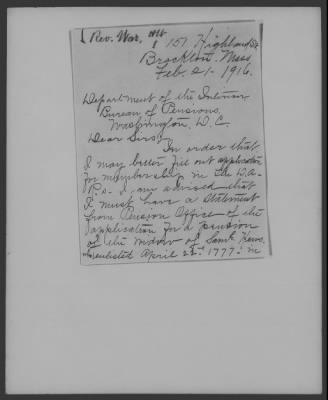 [Rev. War,
151 Highland St.
Brockton. Mass
Feb. 21-1916.
Department of the Interior
Bureau of Pensions,
Washington, D.C.
Dear Sirs:
In order that
I may better fill out application
for membership in the D.A.
R.s. I am advised that
I must have a statement
from Pension Office of the
application for a pension
of the widow of Saml.
enlisted April 22nd 1777. in